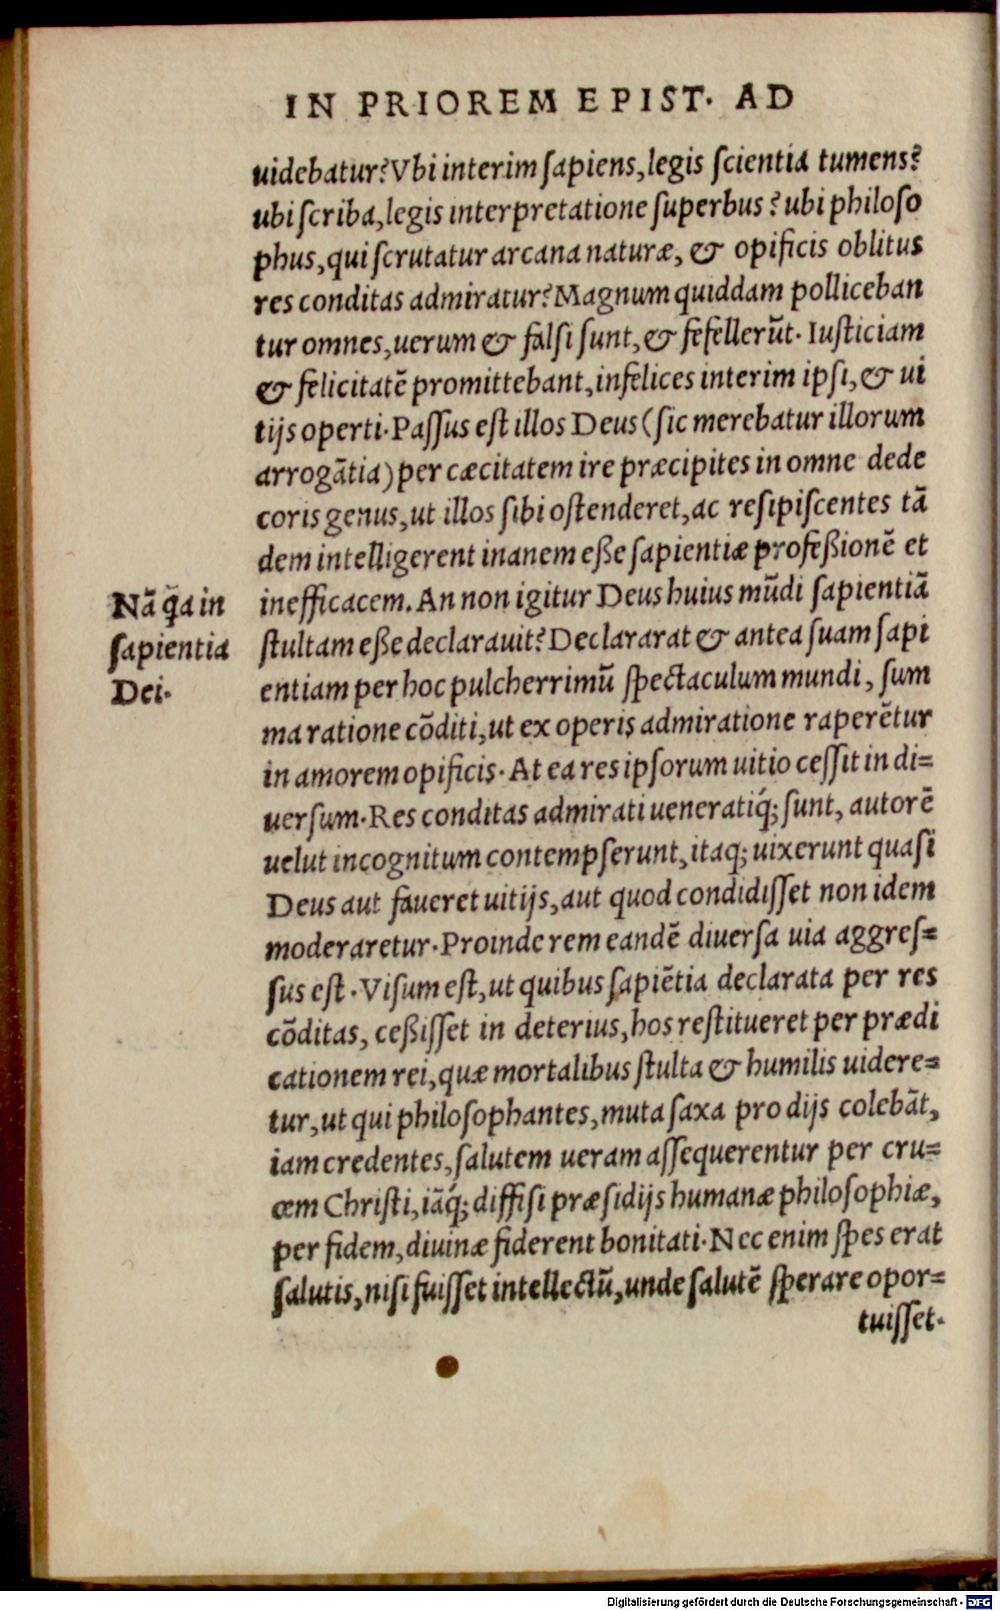 IN PRIOREM EPIST. AD
uidebatur? Vbi interim sapiens, legis scientia tumens?
ubi scriba, legis interpretatione superbus? ubi philoso
phus, qui scrutatur arcana naturæ, & opificis oblitus
res conditas admiratur? Magnum quiddam polliceban
tur omnes, uerum & falsi sunt, & fefellerũt. Iusticiam
& felicitatẽ promittebant, infelices interim ipsi, & ui
tijs operti. Passus est illos Deus (sic merebatur illorum
arrogãtia) per cæcitatem ire præcipites in omne dede
coris genus, ut illos sibi ostenderet, ac resipiscentes tã
dem intelligerent inanem eße sapientiæ profeßionẽ et
Nã q̃a in
sapientia
Dei.
inefficacem. An non igitur Deus huius mũdi sapientiã
stultam eße declarauit? Declararat & antea suam sapi
entiam per hoc pulcherrimũ spectaculum mundi, sum
ma ratione cõditi, ut ex operis admiratione raperẽtur
in amorem opificis. At ea res ipsorum uitio cessit in di=
uersum. Res conditas admirati ueneratiq́; sunt, autorẽ
uelut incognitum contempserunt, itaq; uixerunt quasi
Deus aut faueret uitijs, aut quod condidisset non idem
moderaretur. Proinde rem eandẽ diuersa uia aggres=
sus est. Visum est, ut quibus sapiẽtia declarata per res
cõditas, ceßisset in deterius, hos restitueret per prædi
cationem rei, quæ mortalibus stulta & humilis uidere=
tur, ut qui philosophantes, muta saxa pro dijs colebãt,
iam credentes, salutem ueram assequerentur per cru=
cem Christi, iãq́; diffisi præsidijs humanæ philosophiæ,
per fidem, diuinæ fiderent bonitati. Nec enim spes erat
salutis, nisi fuisset intellectũ, unde salutẽ sperare opor=
tuisset.
Digitalisierung gefördert durch die Deutsche Forschungsgemeinschaft - DFG